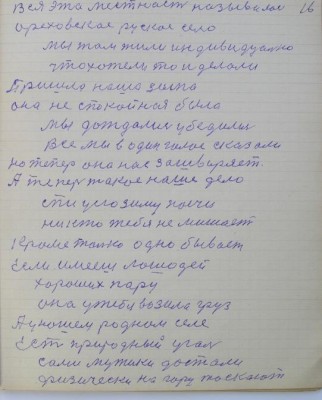 Вся эта местност называлос 16
ореховское руское село
мы там жили индивидуално
что хотель то и делали
Пришла наша зима
она не спокойная была
мы дождали убедили
Все мы в один голос сказали
но тепер она нас зашвыряет.
А тепер такое наше дело
спи у козиму ночи
никто тебя не мишает
Кроме только одно бывает
Если имееш лошодей
хороших пару
она у тебя возила груз
А у ношем родном селе
Ест природный угал
сами мужики достали
физически на гору таскают